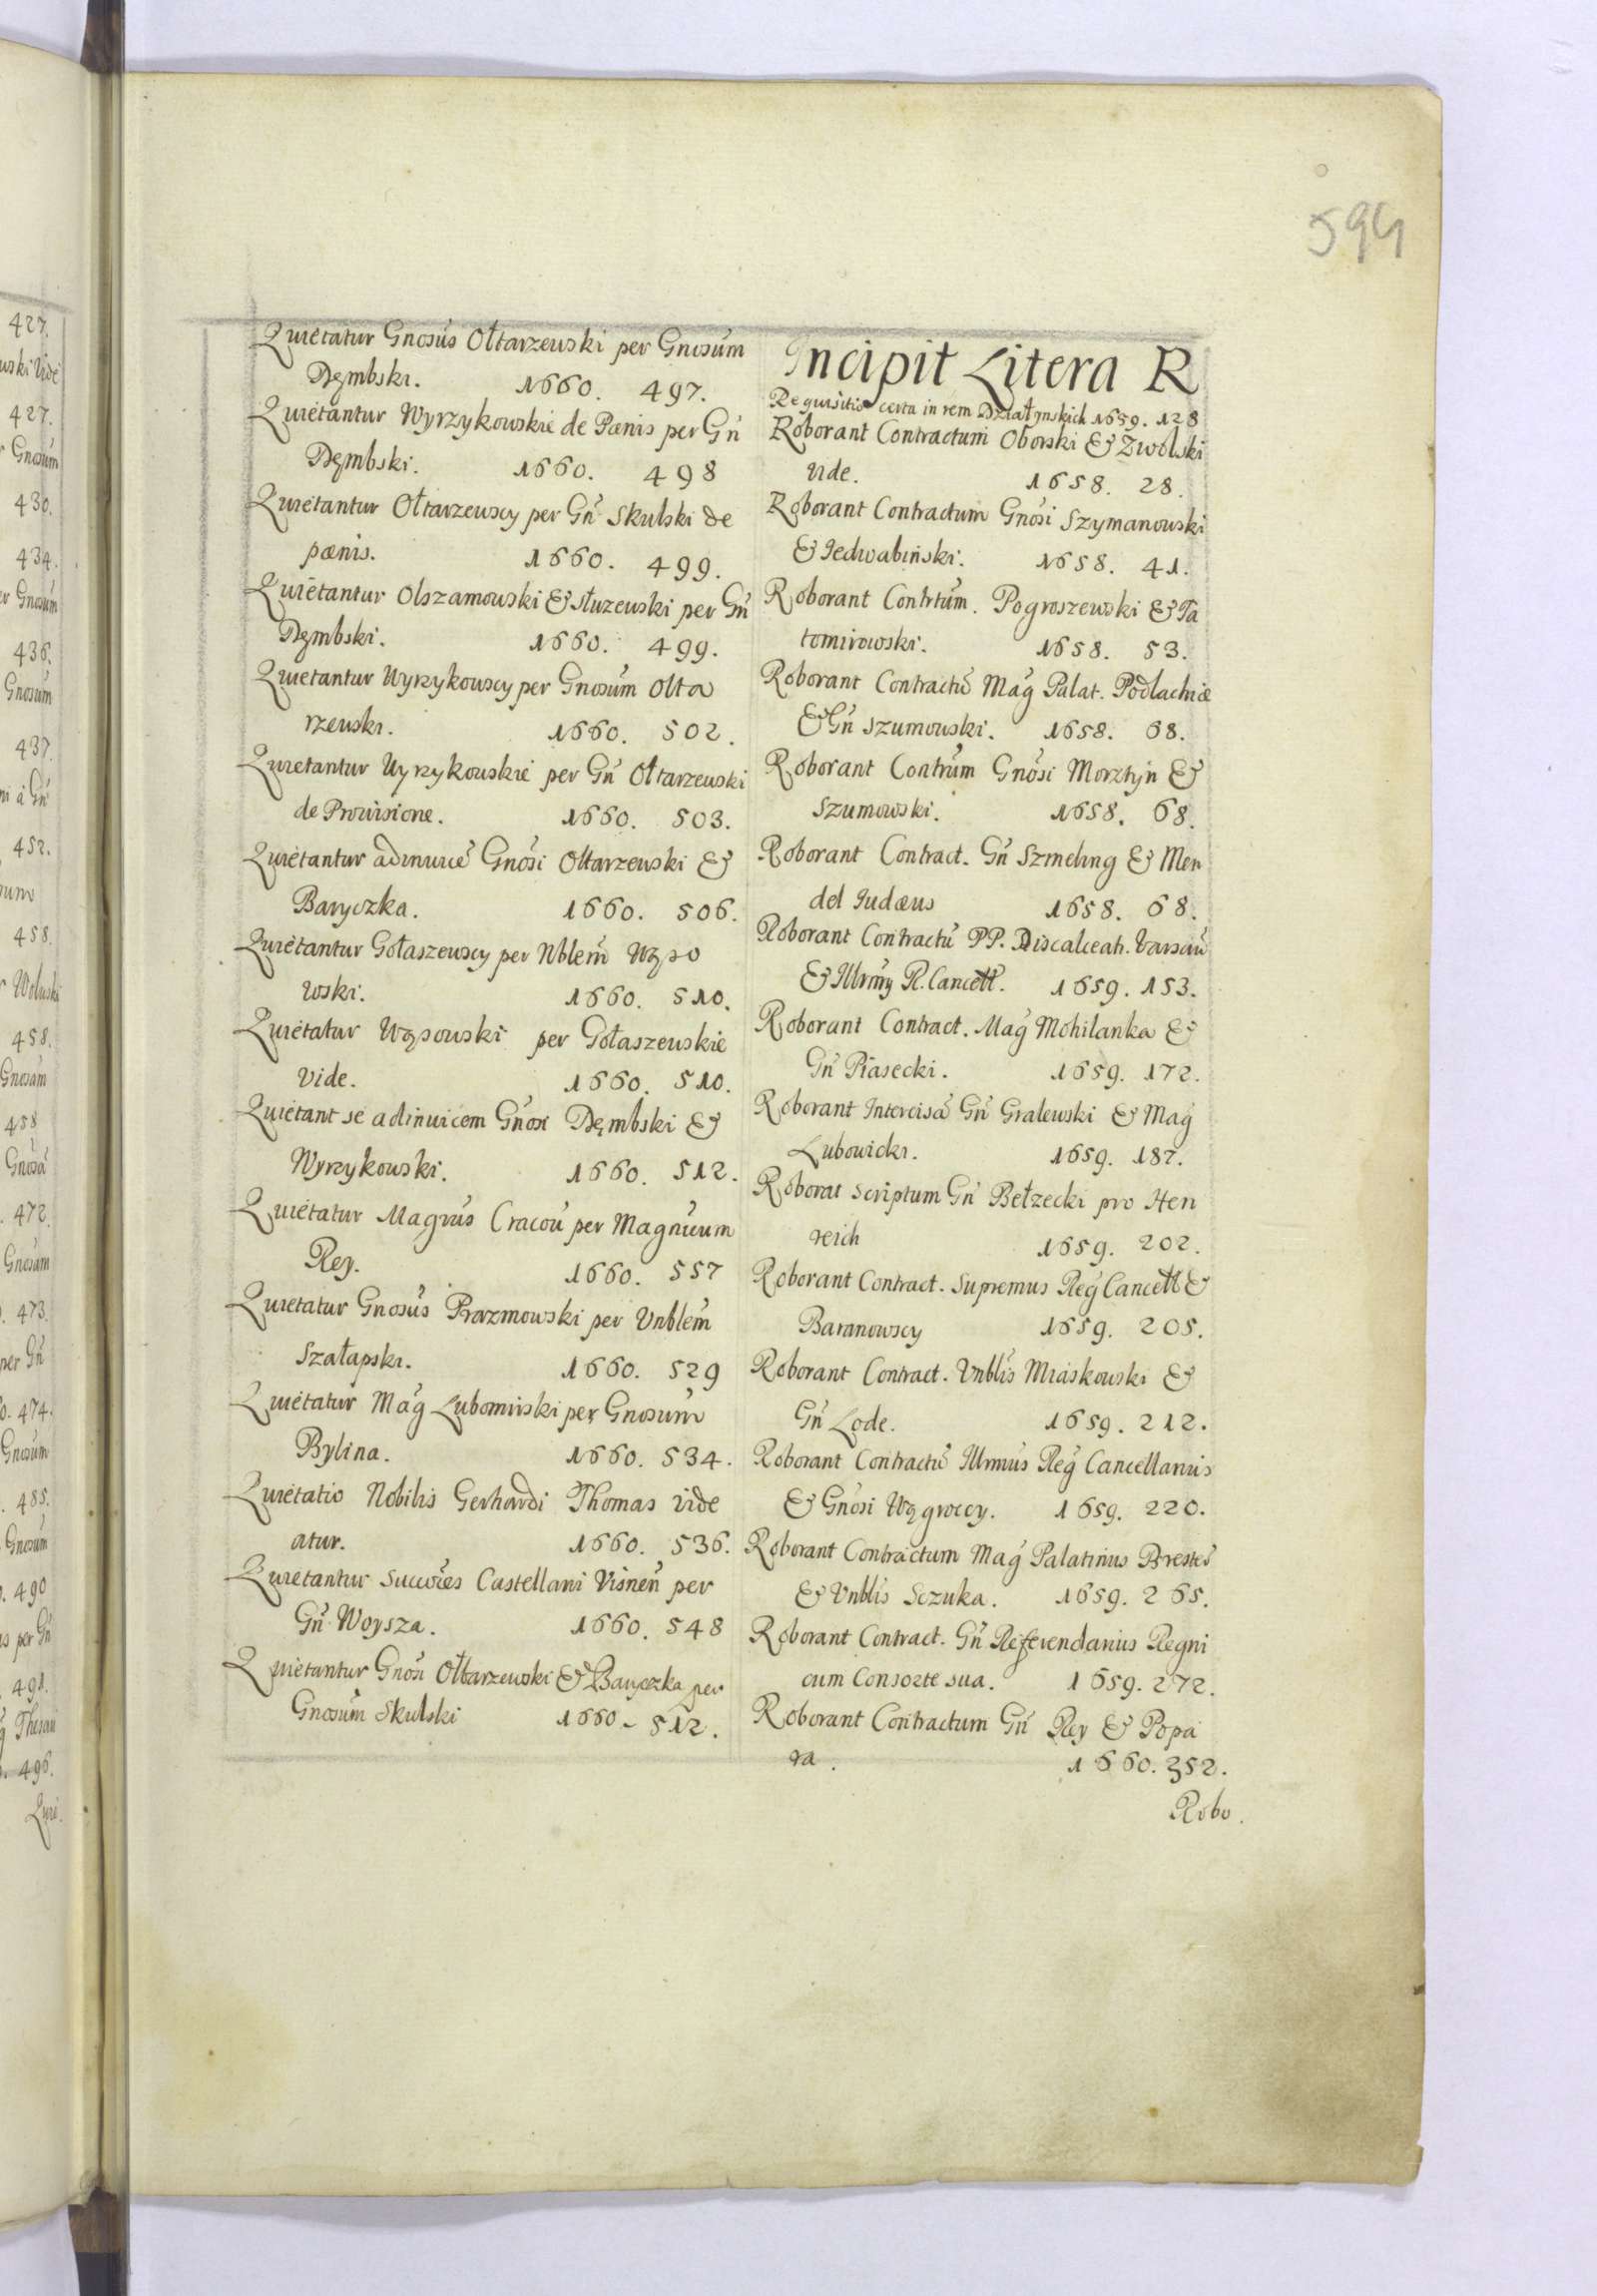 594
Quiẽtatur Gnosús Ołtarzewski per Gnosúm
Dęmbski. 1660. 497.
Quiẽtantur Wyrzykowskie de Pænis per Gń
Dęmbski. 1660. 498
Quiẽtantur Ołtarzewscy per Gń Skulski de
pænis. 1660. 499.
Quiẽtantur Olszamowski & Słuzewski per Gń
Dęmbski. 1660. 499.
Quiẽtantur Wyrzykowscy per Gnosúm Olta
rzewski. 1660. 502.
Quiẽtantur Wyrzykowskie per Gń Ołtarzewski
de Provisione. 1660. 503.
Quiẽtantur adinvicé Gnósi Oltarzewski &
Baryczka. 1660. 506.
Quiẽtantur Gołaszewscy per Nblem Wąso
wski. 1660. 510.
Quiẽtatur Wąsowski per Gołaszewskie
vide. 1660. 510.
Quiẽtant se adinvicem Gnosi Dęmbski &
Wyrzykowski. 1660. 512.
Quiẽtatur Magnús Cracoú per Magnúum
Rey. 1660. 557
Quiẽtatur Gnosús Prazmowski per Vnblem
Szałapski. 1660. 529
Quiẽtatur Mag Lubomirski per Gnosúm
Bylina. 1660. 534.
Quiẽtatio Nobilis Gerhardi Thomas vide
atur. 1660. 536.
Quiẽtantur Succóres Castellani Visneń per
Gń Woysza. 1660. 548
Quiẽtantur Gnosi Ołtarzewski & Baryczka per
Gnosúm Skulski 1660 - 512.
Incipit Litera R
Requisitio certa in rem Działynskich 1659. 128
Roborant Contractum Oborski & Zwolski
vide. 1658. 28.
Roborant Contractum Gnósi Szymanowski
& Jedwabiński. 1658. 41.
Roborant Contrtúm. Pogroszewski & Ta
tomirowski. 1658. 53.
Roborant Contractú Mag Palat. Podlachiæ
& Gń Szumowski. 1658. 68.
Roborant Contrúm Gnósi Morztyn &
Szumowski. 1658. 68.
Roborant Contract. Gń Szmeling & Men
del Judæus 1658. 68.
Roborant Contractú PP. Discalceat. Varsaú
& Illrmy R. Cancell. 1659. 153.
Roborant Contract. Mag Mohilanka &
Gń Piasecki. 1659. 172.
Roborant Intercisá Gń Gralewski & Mag
Lubowicki. 1659. 187.
Roborat scriptum Gń Bełzecki pro Hen
reich 1659. 202.
Roborant Contract. Supremus Reg Cancell &
Baranowscy 1659. 205.
Roborant Contract. Vnblis Miaskowski &
Gń Lode. 1659. 212.
Roborant Contractú Illrmus Reg Cancellarius
& Gnósi Wągroccy. 1659. 220.
Roborant Contractum Mag Palatinus Brestes
& Vnblis Sczuka. 1659. 265.
Roborant Contract. Gń Referendarius Regni
cum Consorte sua. 1659. 272.
Roborant Contractum Gń Rey & Popa
ra. 1660. 352.
Robo.